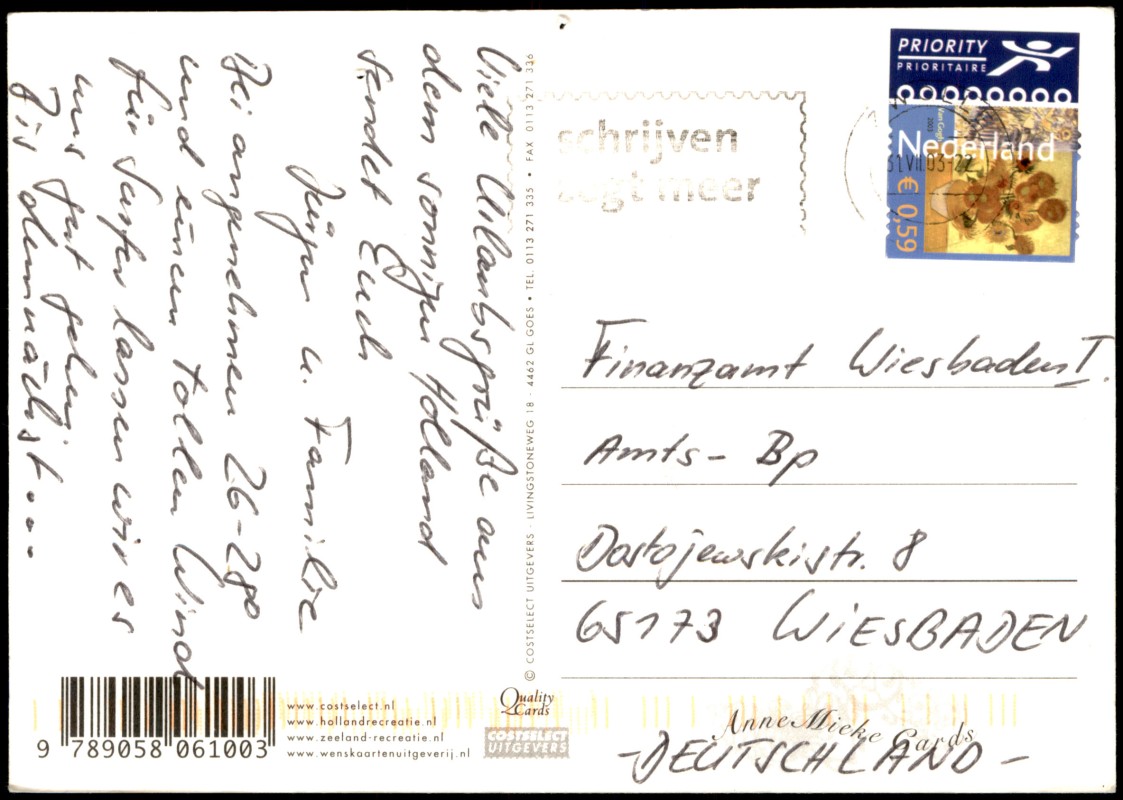 Viele Urlaubsgrüße aus
dem sonnigen Holland
sendet Euch
Jürgen u. Familie
Bei angenehmen 26-28°
und einem tollen Wind
für Surfer lassen wir es
uns gut gehen
Bis demnächst...
© COSTSELECT UITGEVERS · LIVINGSTONEWEG 18 · 4462 GL GOES • TEL. 0113 271 335 • FAX 0113 271 336
schrijven
zegt meer
PRIORITY
PRIORITAIRE
Van Gogh
2003
Nederland
31 VII 03
€ 0,59
Finanzamt Wiesbaden I.
Amts- Bp
Dostojewskistr. 8
65173 WIESBADEN
-DEUTSCHLAND-
9 789058 061003
www.costselect.nl
www.hollandrecreatie.nl
www.zeeland-recreatie.nl
www.wenskaartenuitgeverij.nl
Quality
Cards
COSTSELECT
UITGEVERS
AnneMieke Cards